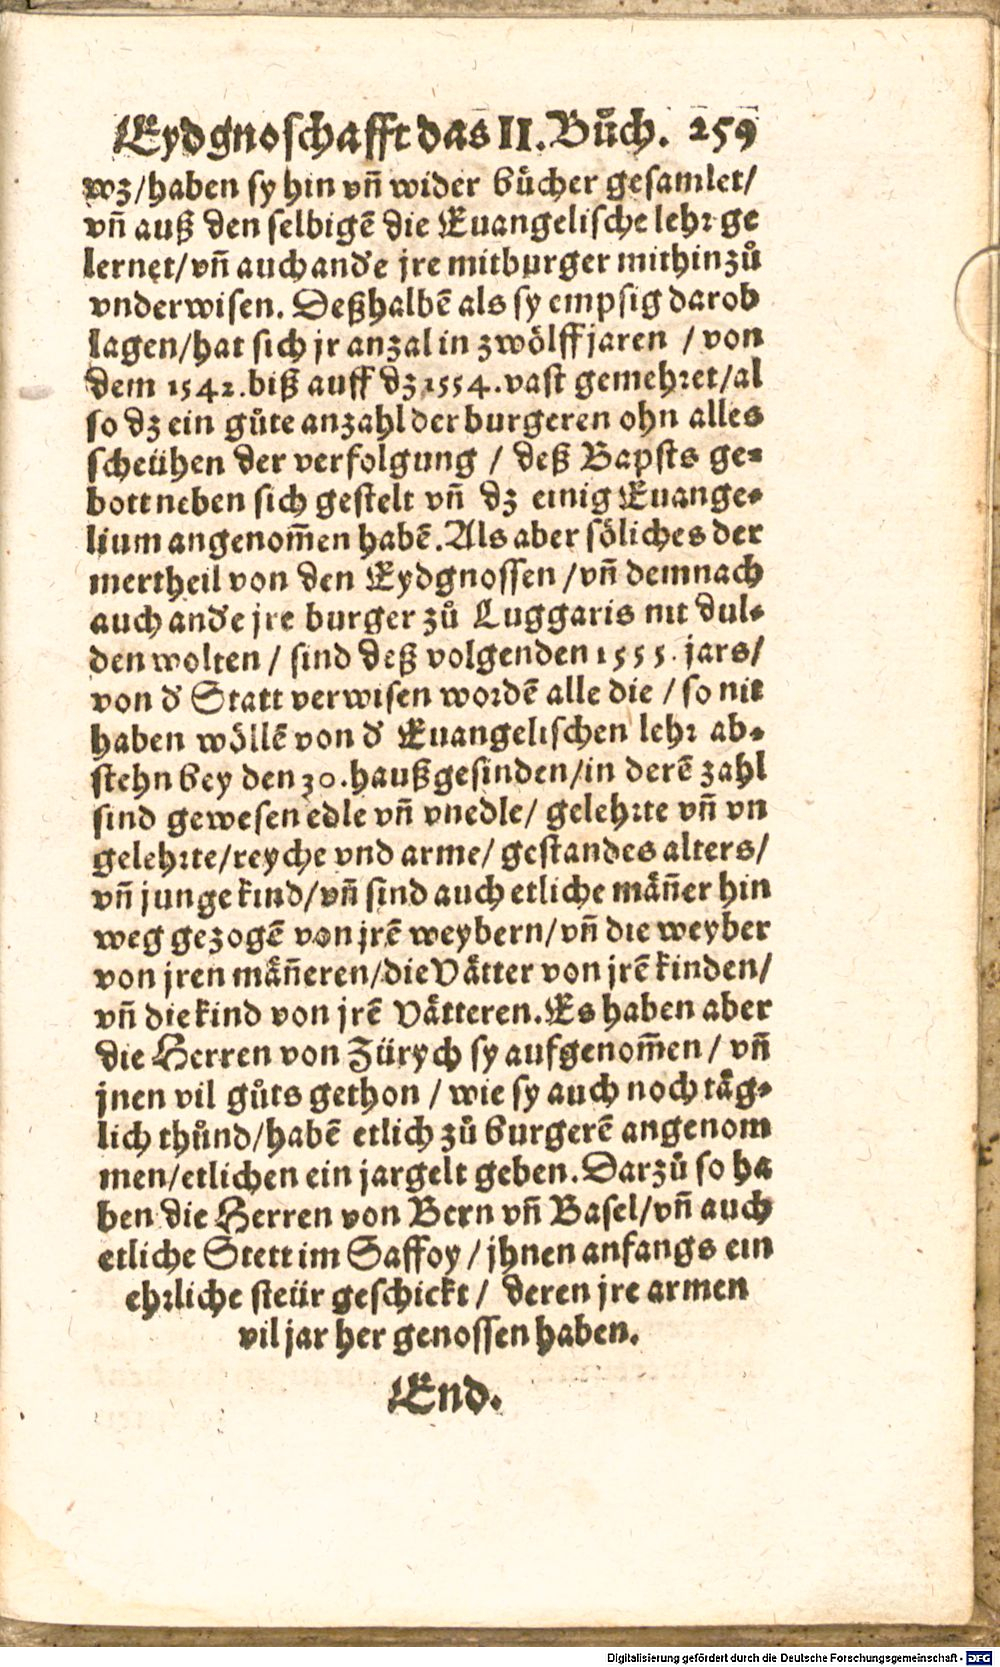 Eydgnoschafft das II. Bůch. 259
wz/haben sy hin vñ wider bůcher gesamlet/
vñ auß den selbigē die Euangelische lehr ge
lernet/vñ auch and̕e jre mitburger mithinzů
vnderwisen. Deßhalbē als sy empsig darob
lagen/hat sich jr anzal in zwölff jaren / von
dem 1542. biß auff dz 1554. vast gemehret/al
so dz ein gůte anzahl der burgeren ohn alles
scheühen der verfolgung / deß Bapsts ge-
bott neben sich gestelt vñ dz einig Euange-
lium angenom̄en habē. Als aber söliches der
mertheil von den Eydgnossen /vñ demnach
auch and̕e jre burger zů Luggaris nit dul-
den wolten / sind deß volgenden 1555. jars/
von d̕ Statt verwisen wordē alle die / so nit
haben wöllē von d̕ Euangelischen lehr ab-
stehn bey den 30. haußgesinden/in derē zahl
sind gewesen edle vñ vnedle/ gelehrte vñ vn
gelehrte/reyche vnd arme/ gestandes alters/
vñ junge kind/vñ sind auch etliche mäñer hin
weg gezogē von jrē weybern/vñ die weyber
von jren mäñeren/die Vätter von jrē kinden/
vñ die kind von jrē Vätteren. Es haben aber
die Herren von Zürych sy aufgenom̄en / vñ
jnen vil gůts gethon / wie sy auch noch täg-
lich thůnd/habē etlich zů burgerē angenom
men/etlichen ein jargelt geben. Darzů so ha
ben die Herren von Bern vñ Basel/vñ auch
etliche Stett im Saffoy / jhnen anfangs ein
ehrliche steür geschickt / deren jre armen
vil jar her genossen haben.
End.
Digitalisierung gefördert durch die Deutsche Forschungsgemeinschaft - DFG